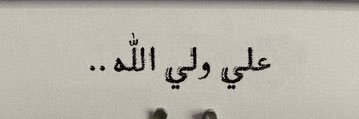 علي ولي الله ..